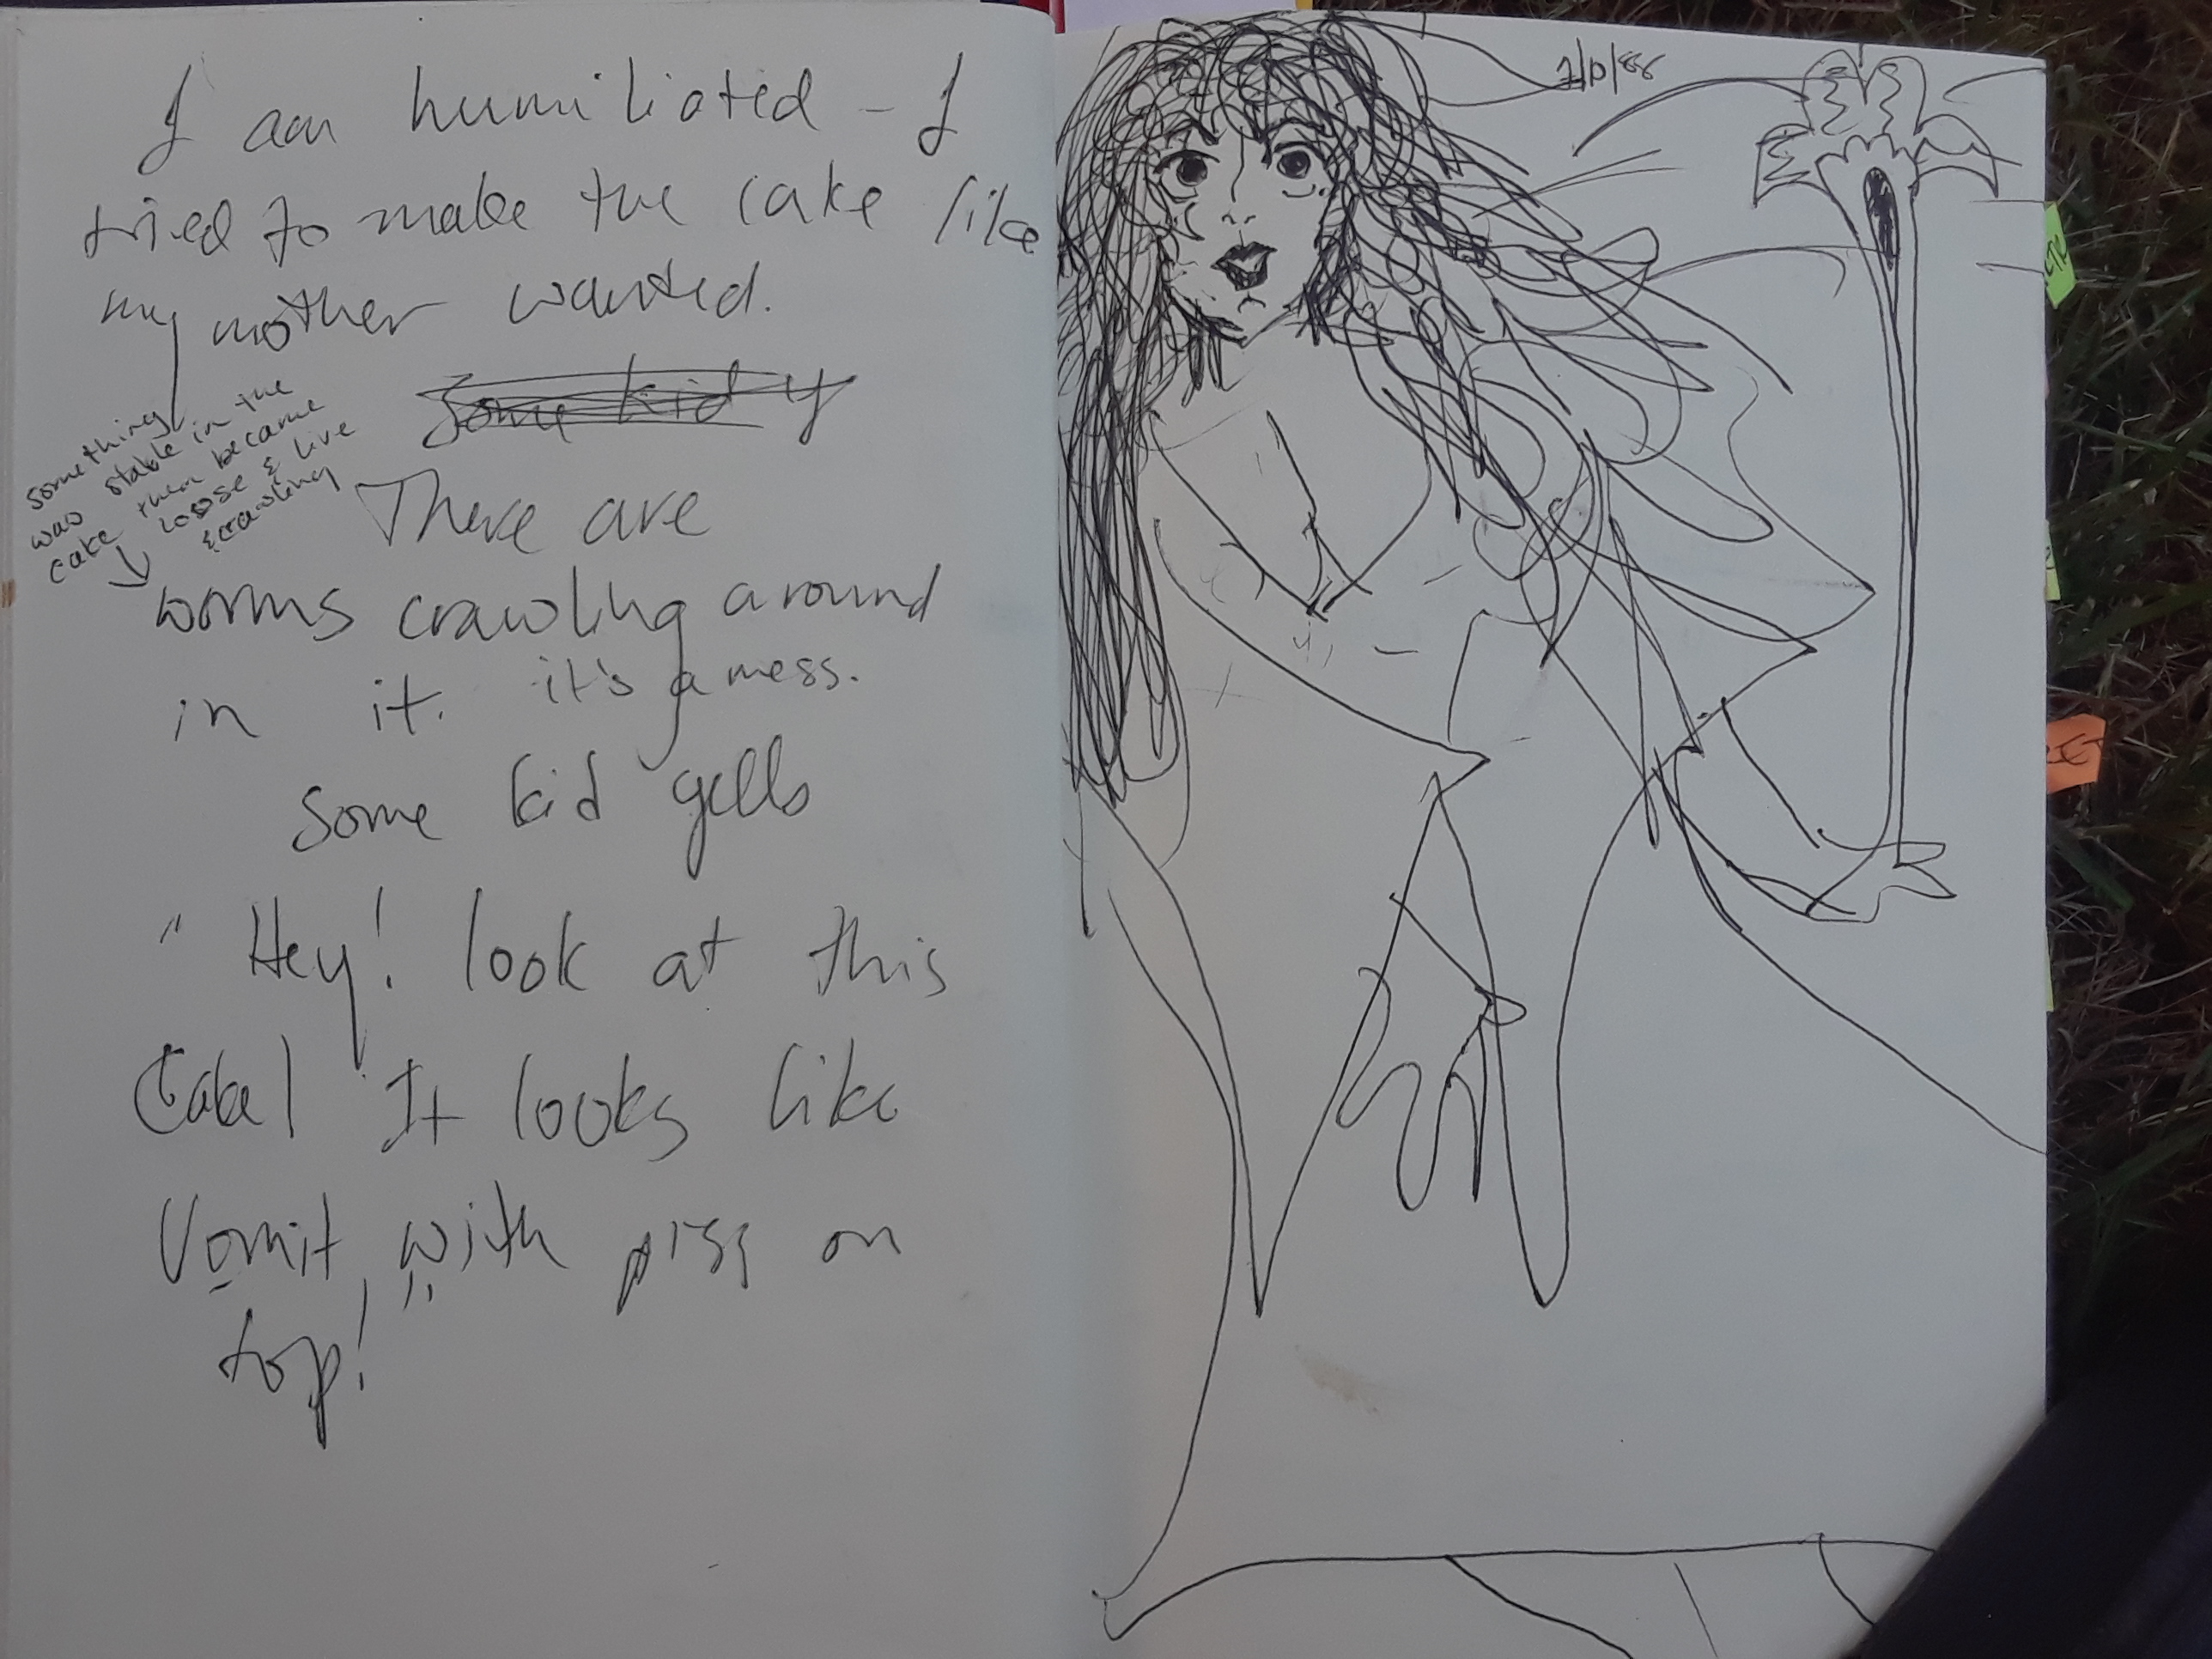 I am humiliated - I
tried to make the cake like
my mother wanted.
Some kid y
something
was stable in the
cake then became
loose & live
& crawling
There are
worms crawling around
in it. it's a mess.
Some kid yells
"Hey! look at this
Cake! It looks like
Vomit with piss on
top!"